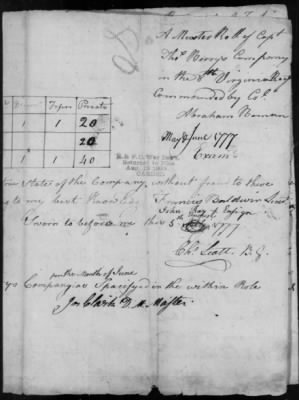 A Muster Roll of Capt
Thos Berrys Company
in the 8th Virginia Regt
Commanded by Col.
Abraham Bowman
May & June 1777
Exam
Drum Fifer Privats
1 1 20
20
1 1 40
R. & P. O. War Dept.
Returned to Files
CARDED
States of the Company, without fraud to these
to my best Knowledge Francis Baldwin Lieut
John Ensign
Sworn to before me this 5th 1777
Chs. Scott. B. G.
for the Month of June
Company as Specifyed in the within Role
Jos Clark D. M. Master